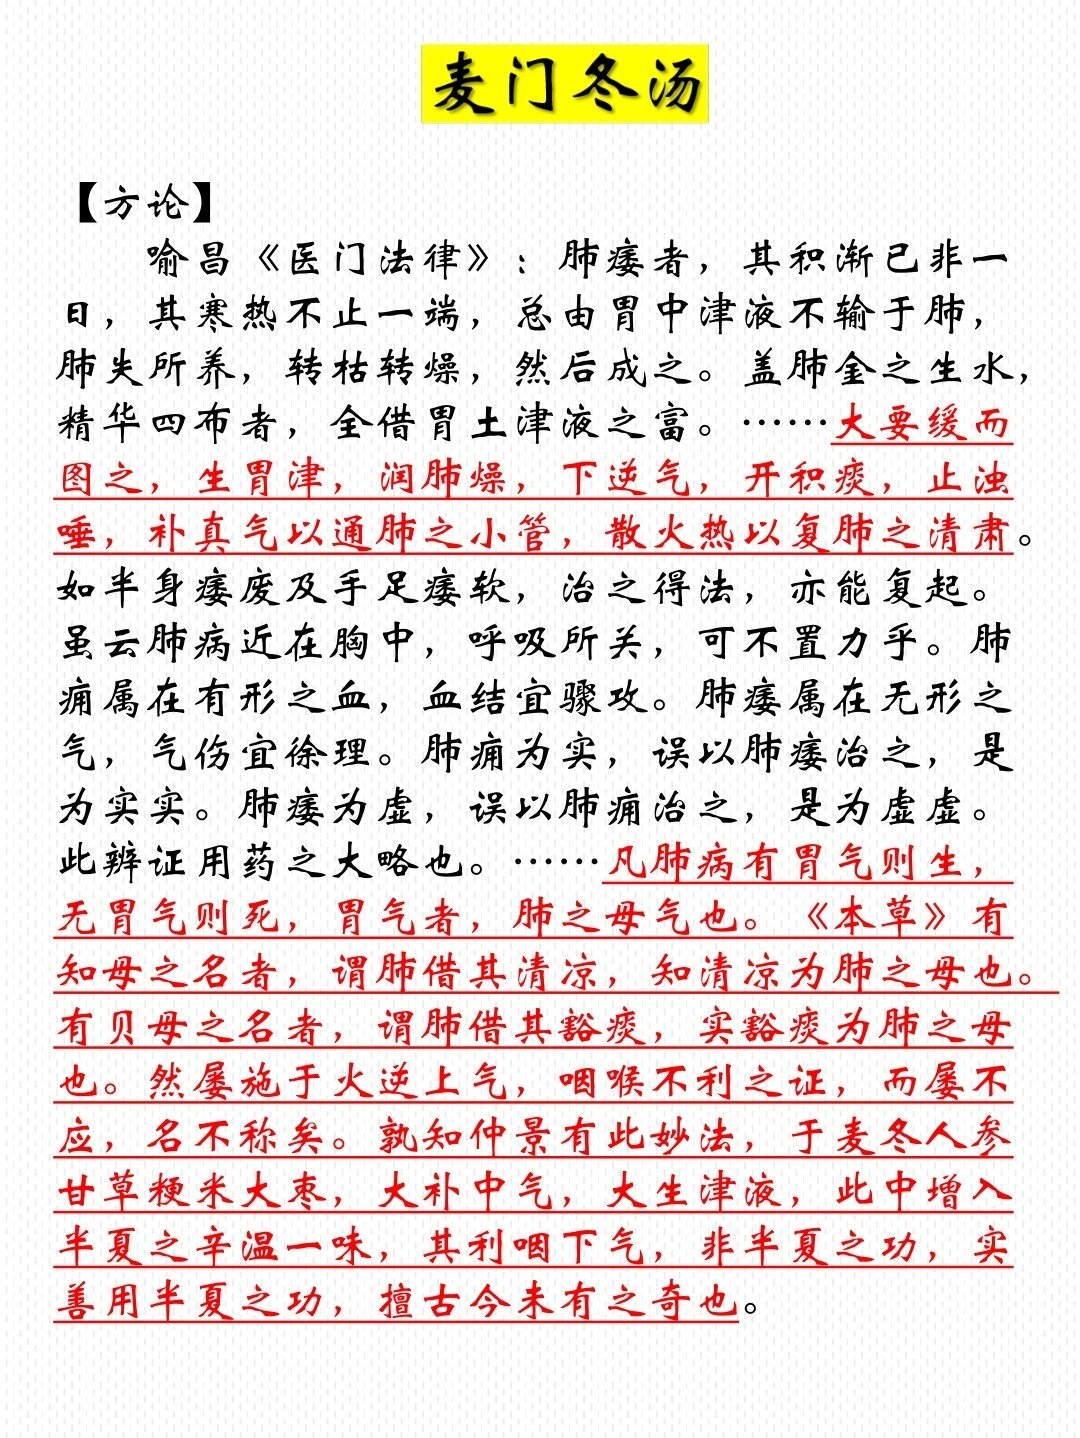 麦门冬汤
【方论】
喻昌《医门法律》：肺痿者，其积渐已非一
日，其寒热不止一端，总由胃中津液不输于肺，
肺失所养，转枯转燥，然后成之。盖肺金之生水，
精华四布者，全借胃土津液之富。……大要缓而
图之，生胃津，润肺燥，下逆气，开积痰，止浊
唾，补真气以通肺之小管，散火热以复肺之清肃。
如半身痿废及手足痿软，治之得法，亦能复起。
虽云肺病近在胸中，呼吸所关，可不置力乎。肺
痈属在有形之血，血结宜骤攻。肺痿属在无形之
气，气伤宜徐理。肺痈为实，误以肺痿治之，是
为实实。肺痿为虚，误以肺痈治之，是为虚虚。
此辨证用药之大略也。……凡肺病有胃气则生，
无胃气则死，胃气者，肺之母气也。《本草》有
知母之名者，谓肺借其清凉，知清凉为肺之母也。
有贝母之名者，谓肺借其豁痰，实豁痰为肺之母
也。然屡施于火逆上气，咽喉不利之证，而屡不
应，名不称矣。孰知仲景有此妙法，于麦冬人参
甘草粳米大枣，大补中气，大生津液，此中增入
半夏之辛温一味，其利咽下气，非半夏之功，实
善用半夏之功，擅古今未有之奇也。